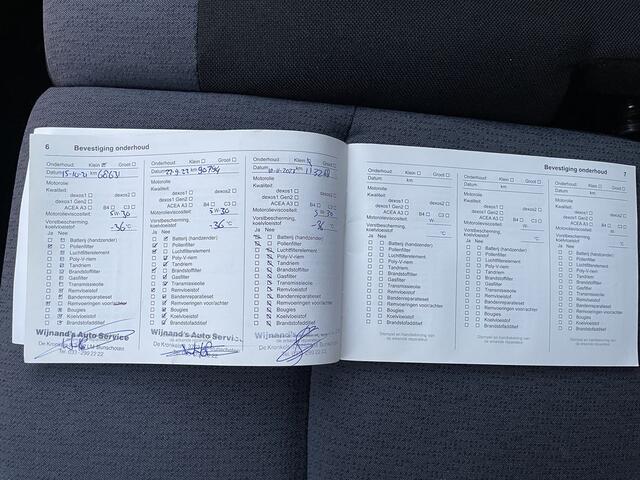 6 Bevestiging onderhoud
Onderhoud: Klein Groot
Datum 15-10-21 km 68631
Motorolie
Kwaliteit:
dexos1 dexos2
dexos1 Gen2
ACEA A3 B4 C3
Motorolieviscositeit 5W30
Vorstbescherming
koelvloeistof -36 °C
Ja Nee
Batterij (handzender)
Pollenfilter
Luchtfilterelement
Poly-V-riem
Tandriem
Brandstoffilter
Gasfilter
Transmissieolie
Remvloeistof
Bandenreparatieset
Remvoeringen voor/achter
Bougies
Koelvloeistof
Brandstofadditief
Wijnand's Auto Service
De Kronkels
Bunschoten
Tel. 033 - 299 22 22
Onderhoud: Klein Groot
Datum 22-9-22 km 90794
Motorolie
Kwaliteit:
dexos1 dexos2
dexos1 Gen2
ACEA A3 B4 C3
Motorolieviscositeit 5W30
Vorstbescherming
koelvloeistof -36 °C
Ja Nee
Batterij (handzender)
Pollenfilter
Luchtfilterelement
Poly-V-riem
Tandriem
Brandstoffilter
Gasfilter
Transmissieolie
Remvloeistof
Bandenreparatieset
Remvoeringen voor/achter
Bougies
Koelvloeistof
Brandstofadditief
Wijnand's Auto Servi
De Kronkels
Bunschoten
Tel. 033 - 299 22 22
Onderhoud: Klein Groot
Datum km
Motorolie
Kwaliteit:
dexos1 dexos2
dexos1 Gen2
ACEA A3 B4 C3
Motorolieviscositeit 5W30
Vorstbescherming
koelvloeistof -36 °C
Ja Nee
Batterij (handzender)
Pollenfilter
Luchtfilterelement
Poly-V-riem
Tandriem
Brandstoffilter
Gasfilter
Transmissieolie
Remvloeistof
Bandenreparatieset
Remvoeringen voor/achter
Bougies
Koelvloeistof
Brandstofadditief
Wijnand's Auto
De Kronkels
Bunschoten
Bevestiging onderhoud 7
Onderhoud: Klein Groot
Datum km
Motorolie
Kwaliteit:
dexos1 dexos2
dexos1 Gen2
ACEA A3 B4 C3
Motorolieviscositeit W-
Vorstbescherming
koelvloeistof °C
Ja Nee
Batterij (handzender)
Pollenfilter
Luchtfilterelement
Poly-V-riem
Tandriem
Brandstoffilter
Gasfilter
Transmissieolie
Remvloeistof
Bandenreparatieset
Remvoeringen voor/achter
Bougies
Koelvloeistof
Brandstofadditief
Stempel en handtekening van
de erkende reparateur
Onderhoud: Klein Groot
Datum km
Motorolie
Kwaliteit:
dexos1 dexos2
dexos1 Gen2
ACEA A3 B4 C3
Motorolieviscositeit W-
Vorstbescherming
koelvloeistof °C
Ja Nee
Batterij (handzender)
Pollenfilter
Luchtfilterelement
Poly-V-riem
Tandriem
Brandstoffilter
Gasfilter
Transmissieolie
Remvloeistof
Bandenreparatieset
Remvoeringen voor/achter
Bougies
Koelvloeistof
Brandstofadditief
Stempel en handtekening van
de erkende reparateur
Onderhoud: Klein Groot
Datum km
Motorolie
Kwaliteit:
dexos1 dexos2
dexos1 Gen2
ACEA A3 B4 C3
Motorolieviscositeit W-
Vorstbescherming
koelvloeistof °C
Ja Nee
Batterij (handzender)
Pollenfilter
Luchtfilterelement
Poly-V-riem
Tandriem
Brandstoffilter
Gasfilter
Transmissieolie
Remvloeistof
Bandenreparatieset
Remvoeringen voor/achter
Bougies
Koelvloeistof
Brandstofadditief
Stempel en handtekening van
de erkende reparateur